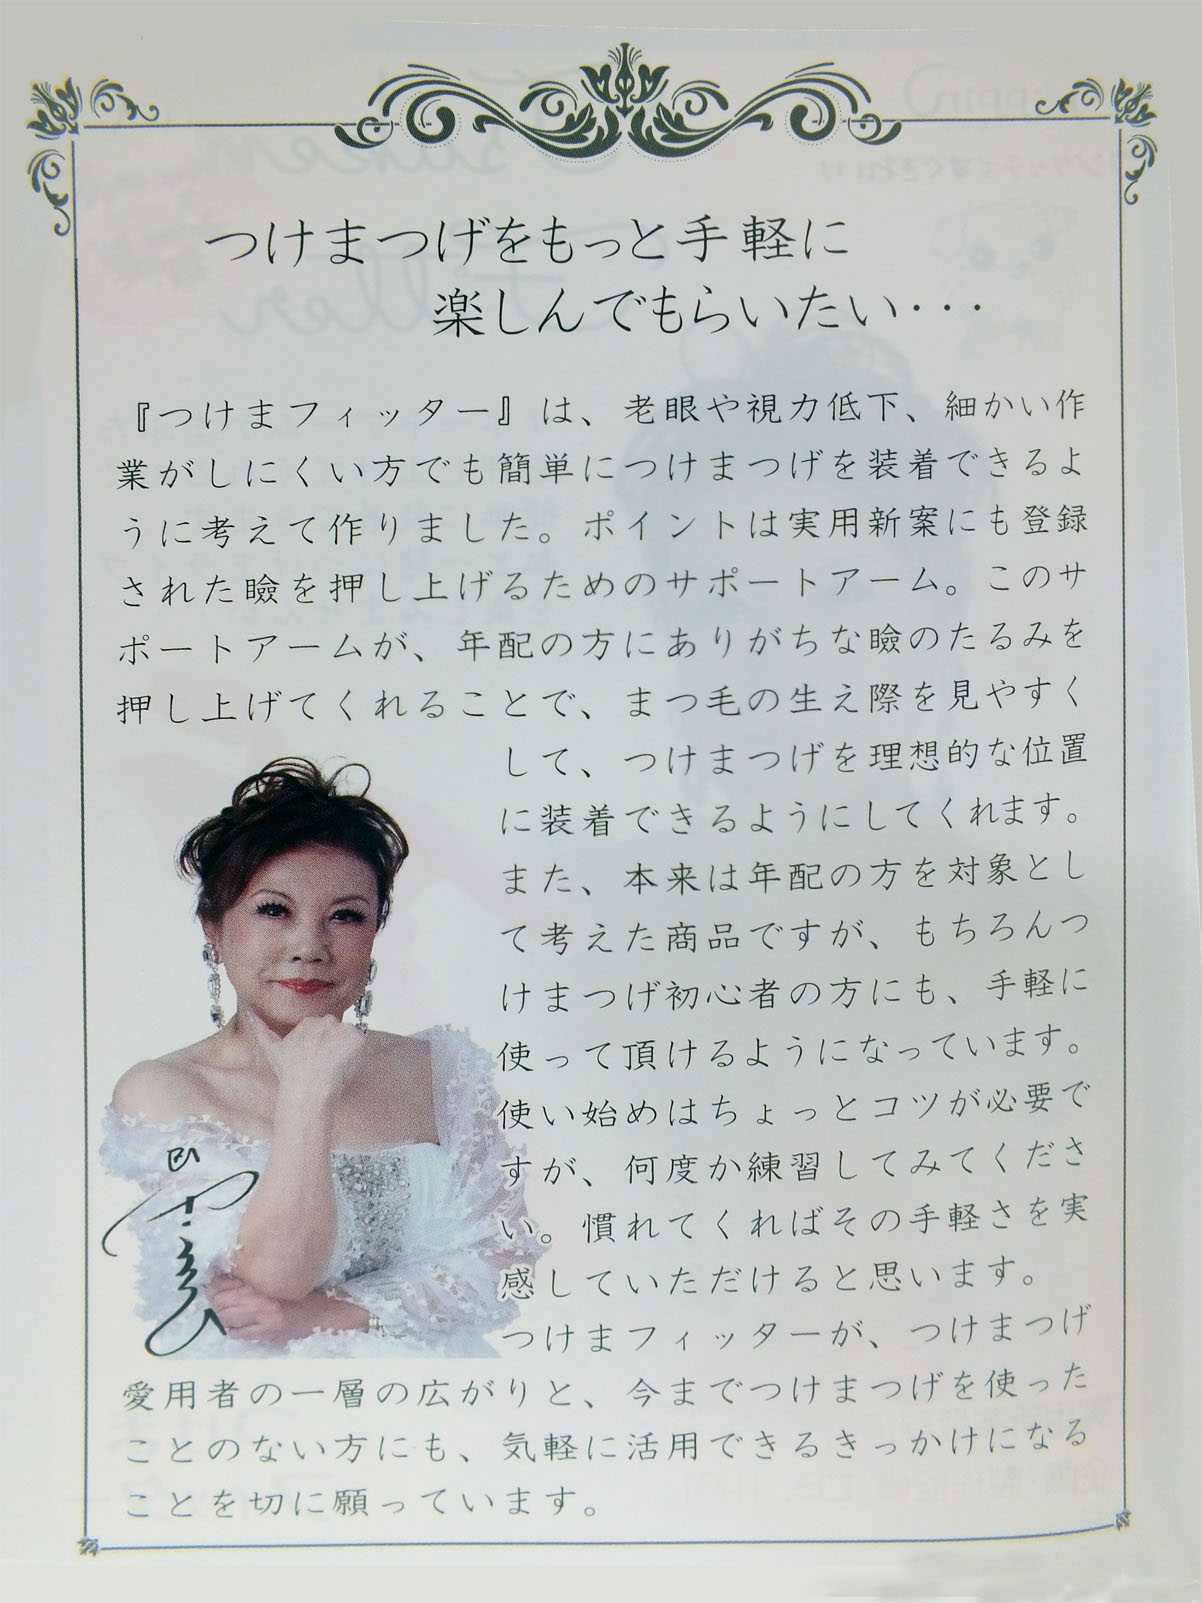 つけまつげをもっと手軽に
楽しんでもらいたい・・・
『つけまフィッター』は、老眼や視力低下、細かい作
業がしにくい方でも簡単につけまつげを装着できるよ
うに考えて作りました。ポイントは実用新案にも登録
された瞼を押し上げるためのサポートアーム。このサ
ポートアームが、年配の方にありがちな瞼のたるみを
押し上げてくれることで、まつ毛の生え際を見やすく
して、つけまつげを理想的な位置
に装着できるようにしてくれます。
また、本来は年配の方を対象とし
て考えた商品ですが、もちろんつ
けまつげ初心者の方にも、手軽に
使って頂けるようになっています。
使い始めはちょっとコツが必要で
すが、何度か練習してみてくださ
い。慣れてくればその手軽さを実
感していただけると思います。
つけまフィッターが、つけまつげ
愛用者の一層の広がりと、今までつけまつげを使った
ことのない方にも、気軽に活用できるきっかけになる
ことを切に願っています。